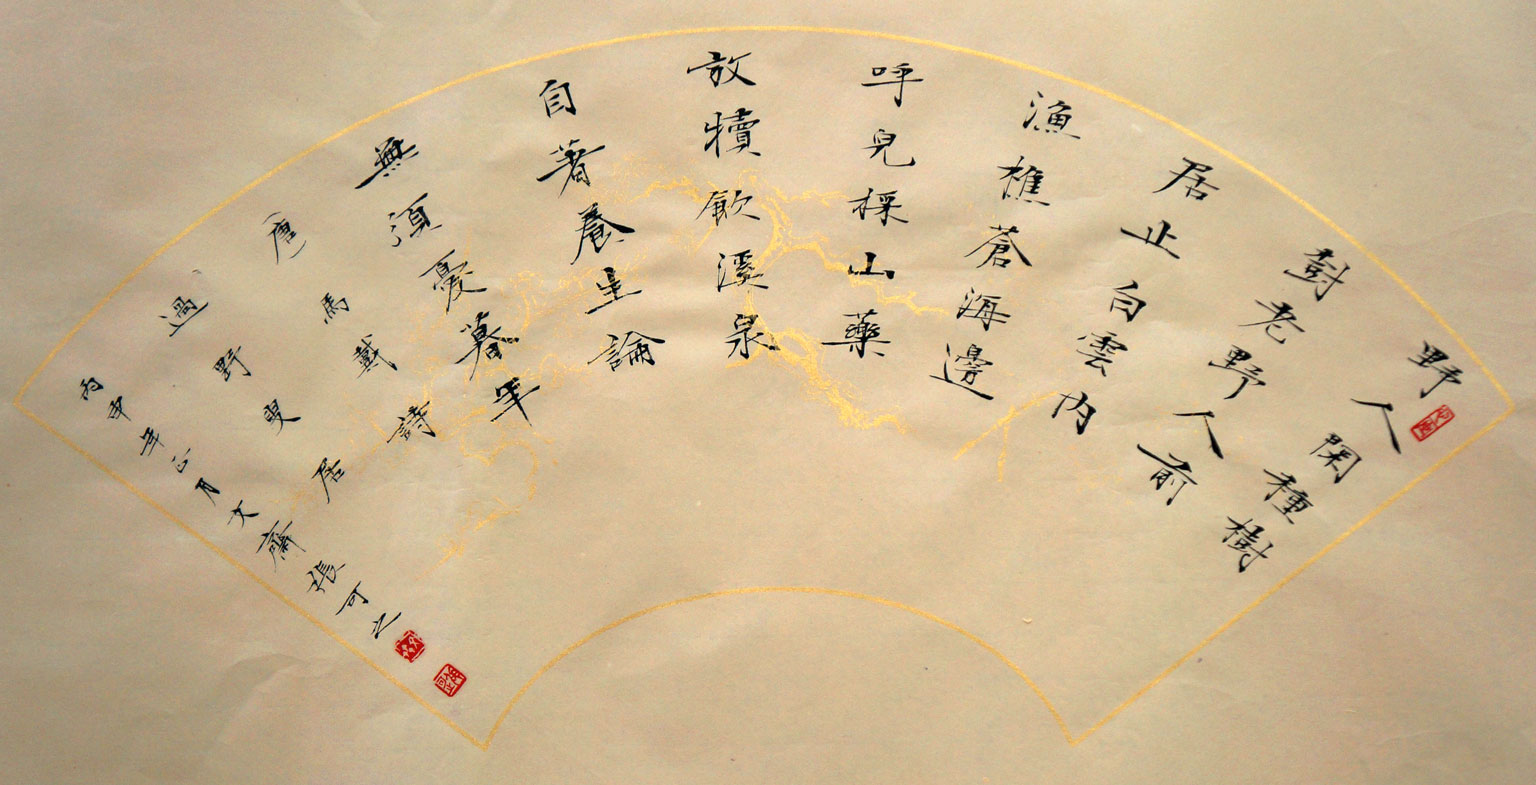 野人閑種樹
樹老野人前
居止白雲內
漁樵蒼海邊
呼兒採山藥
放犢飲溪泉
自著養生論
無須憂暮年
唐馬戴詩
過野叟居
丙申年正月文齋張可之